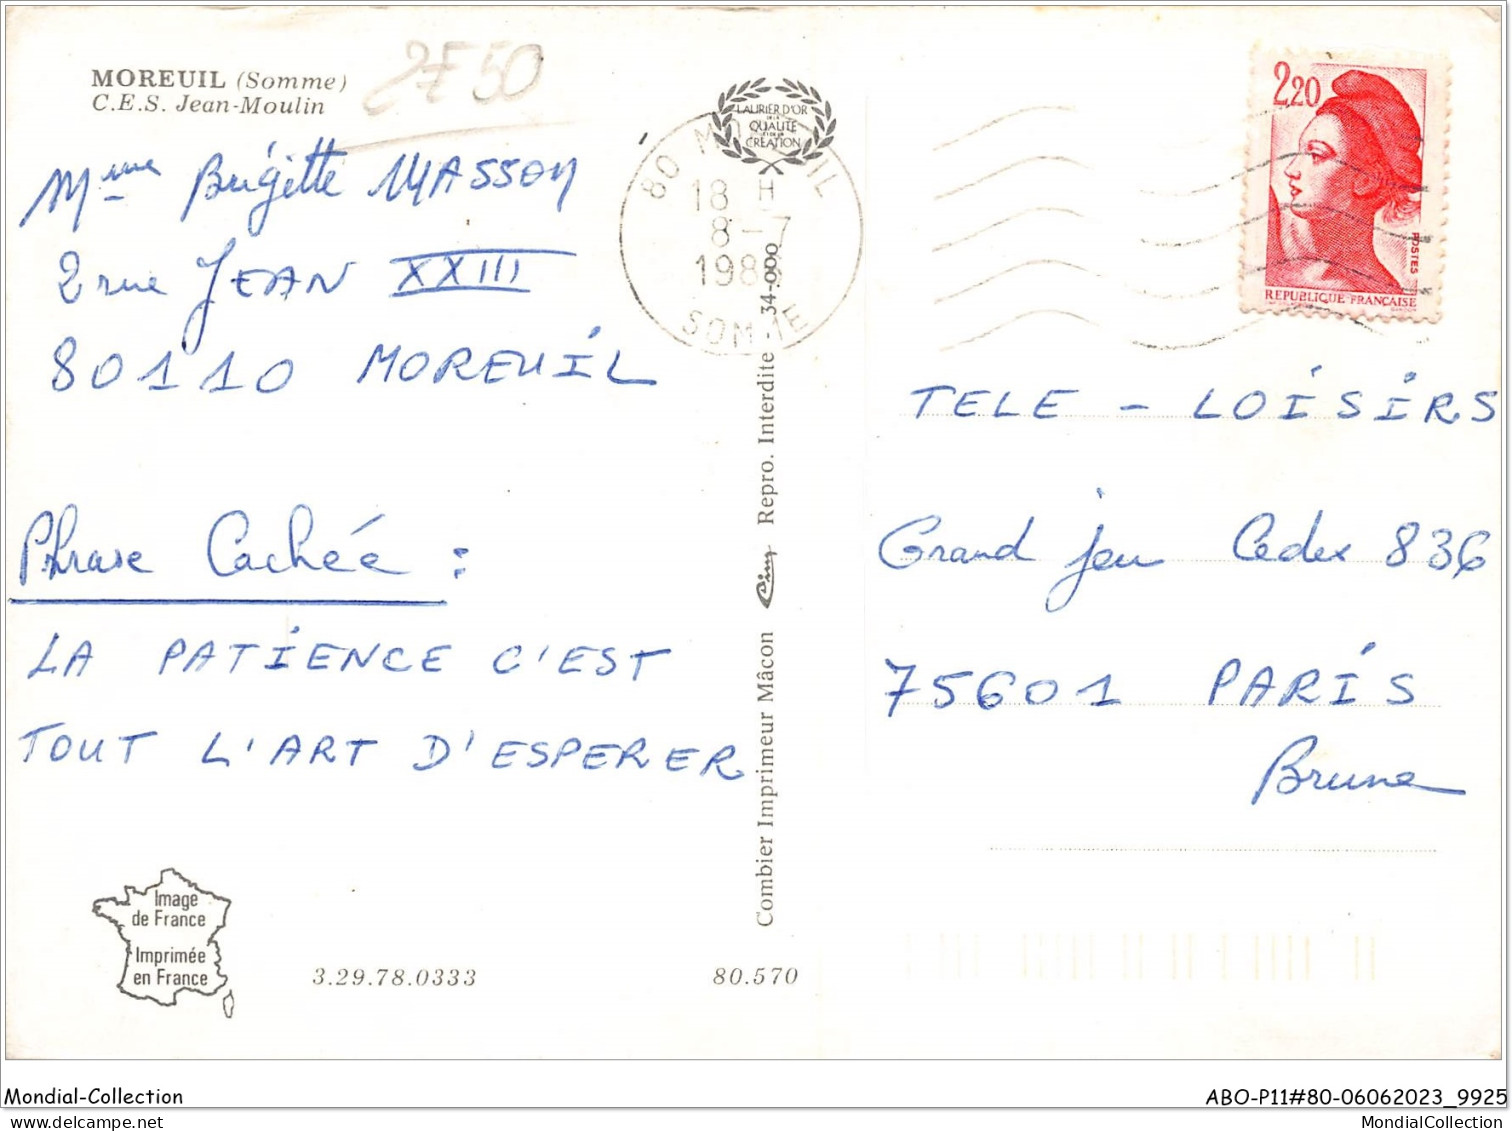 MOREUIL (Somme)
C.E.S. Jean-Moulin
2F50
Mme Brigitte MASSON
2 rue JEAN XXIII
80110 MOREUIL
Phrase Cachée :
LA PATIENCE C'EST
TOUT L'ART D'ESPERER
Image
de France
Imprimée
en France
3.29.78.0333
80.570
LAURIER D'OR
DE LA
QUALITÉ
ET DE LA
CRÉATION
80 MOREUIL
18 H
8-7
SOMME
Combier Imprimeur Mâcon Cim Repro. Interdite 34-000
2,20
POSTES
REPUBLIQUE FRANÇAISE
TELE - LOISIRS
Grand jeu Cedex 836
75601 PARIS
Brune
Mondial-Collection
ABO-P11#80-06062023_9925
www.delcampe.net
MondialCollection